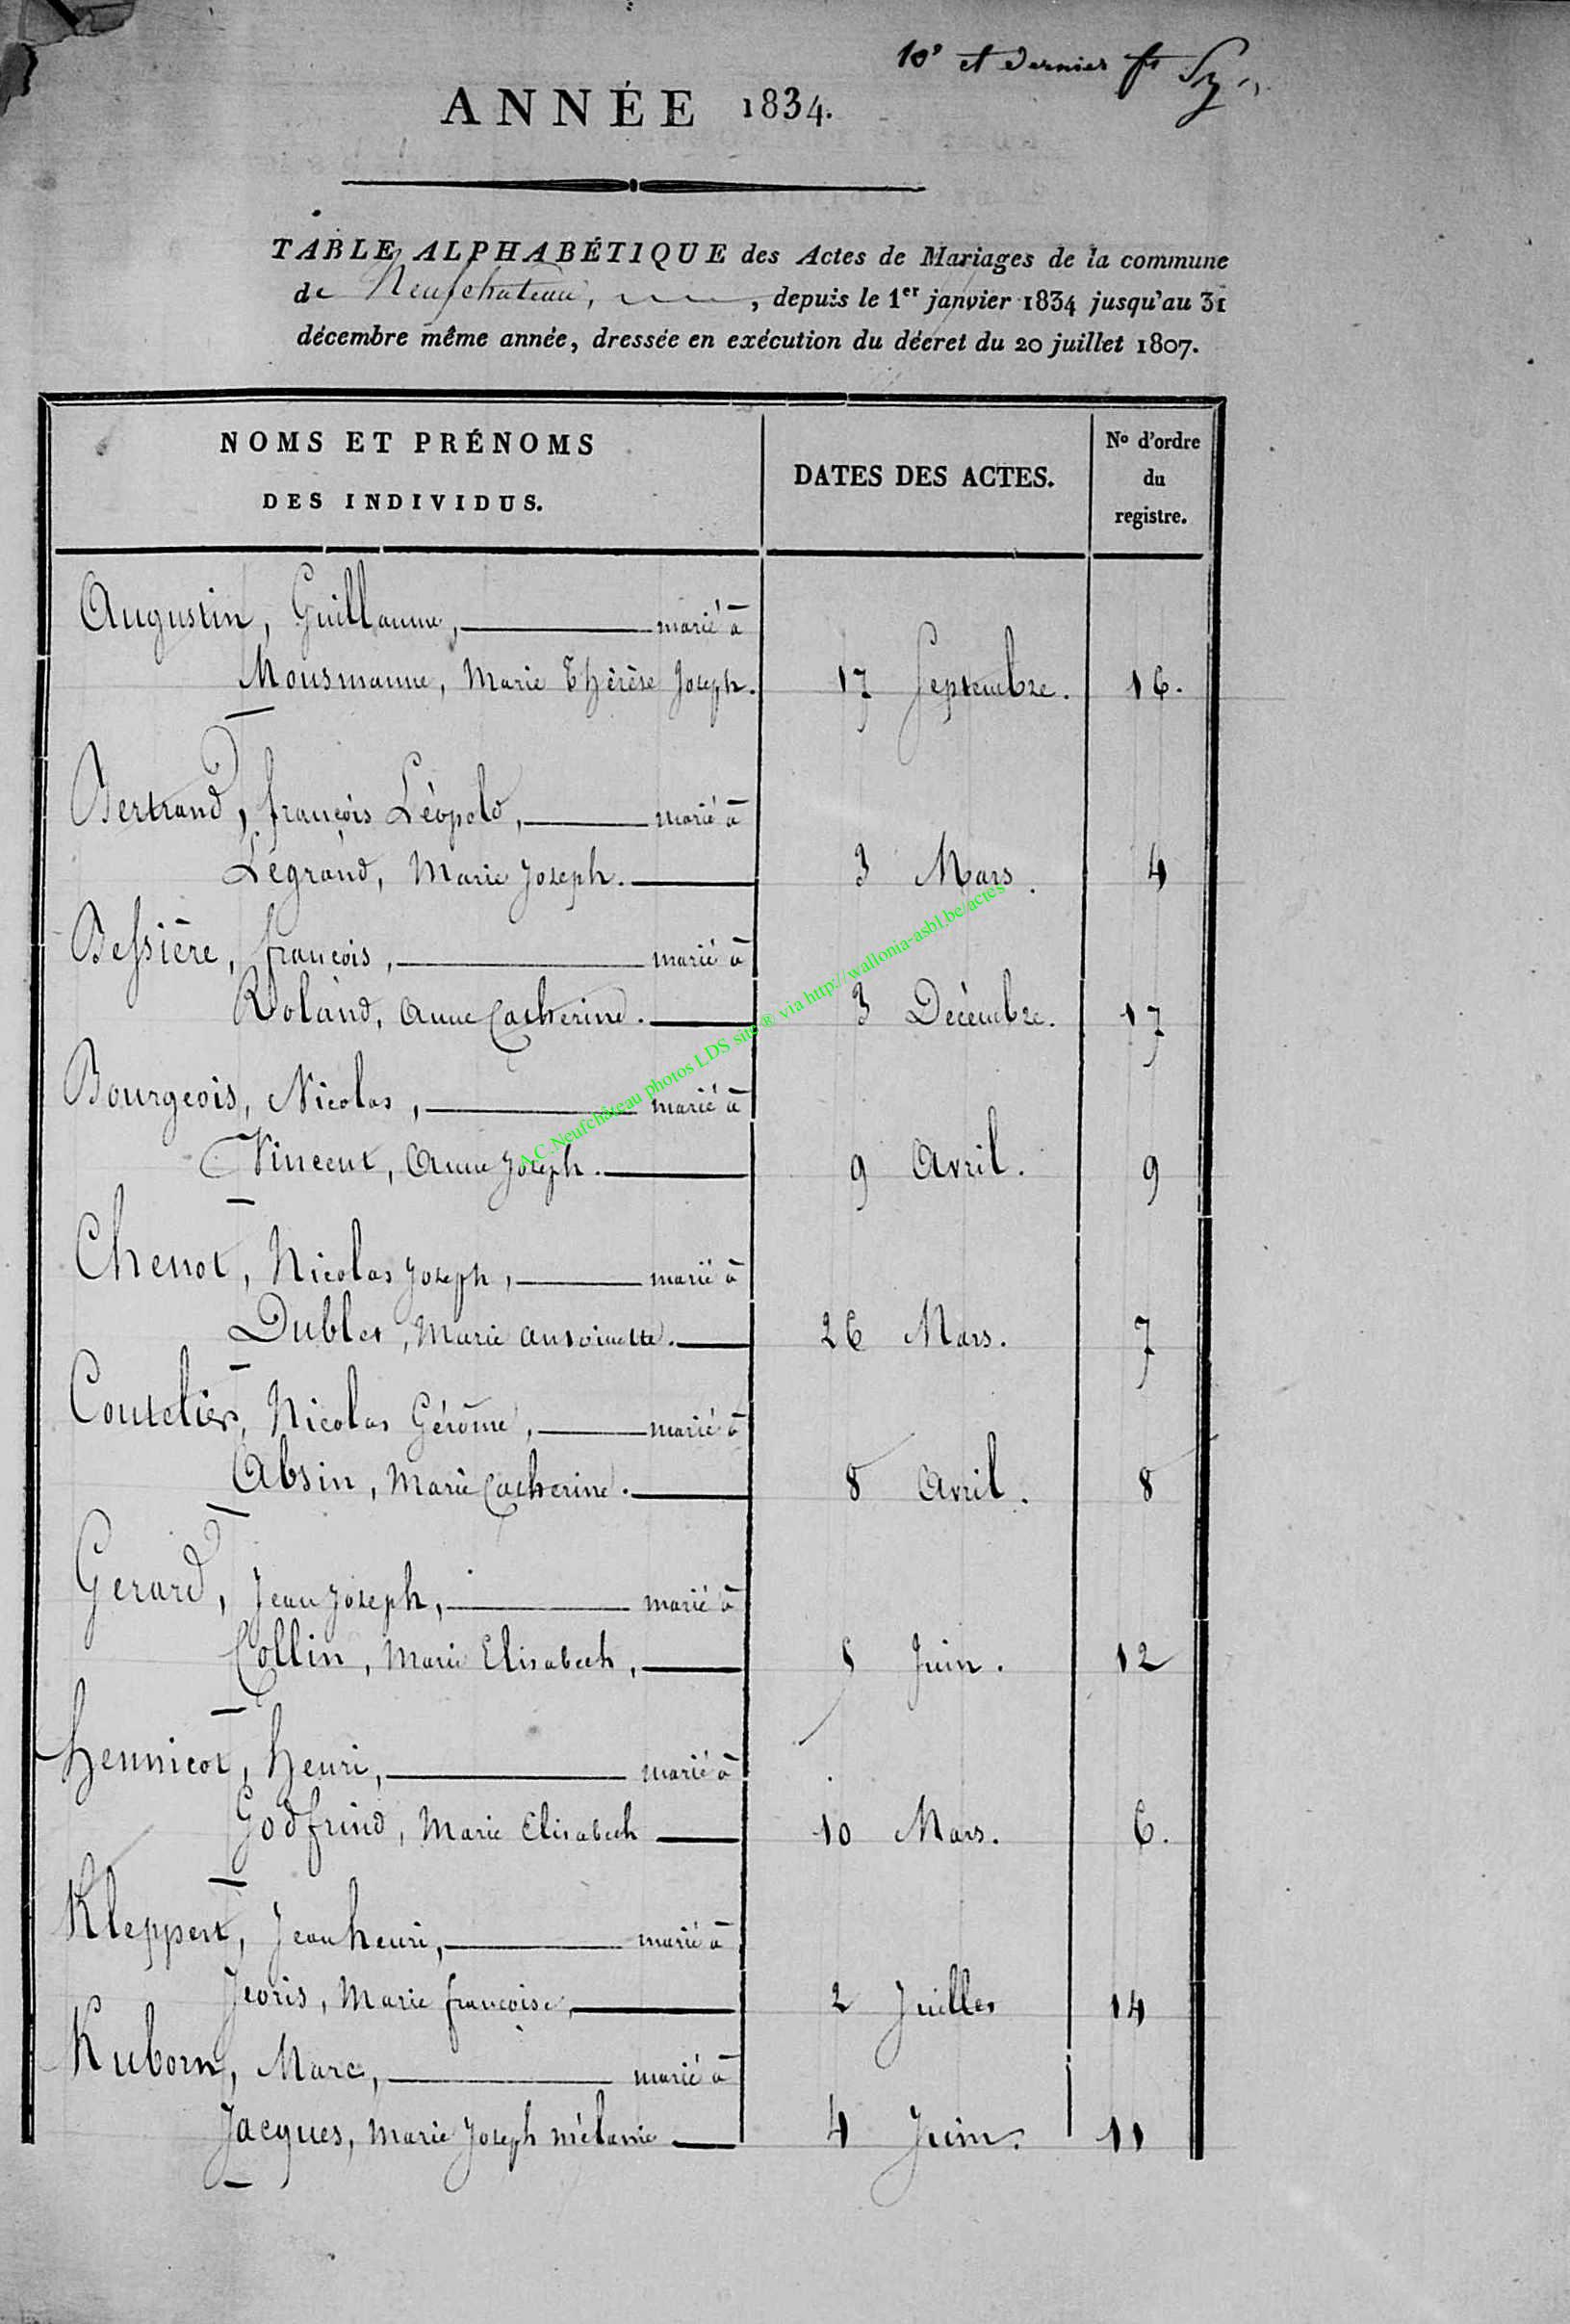 10e et dernier ft
ANNÉE 1834.
TABLE ALPHABÉTIQUE des Actes de Mariages de la commune
de Neufchateau, , depuis le 1er janvier 1834 jusqu'au 31
décembre même année, dressée en exécution du décret du 20 juillet 1807.
NOMS ET PRÉNOMS
DES INDIVIDUS.
DATES DES ACTES.
No d'ordre
du
registre.
Augustin, Guillaume, marié à
Mousmanne, Marie Thérèse Joseph. 17 Septembre. 16.
Bertrand, françois Léopold, marié à
Légrand, Marie Joseph. 3 Mars. 4
Bessière, françois, marié à
Roland, Anne Catherine. 3 Décembre. 17
Bourgeois, Nicolas, marié à
Vincent, Anne Joseph. 9 Avril. 9
Chenot, Nicolas Joseph, marié à
Dublet, Marie Antoinette. 26 Mars. 7
Coutelier, Nicolas Gérôme, marié à
Absin, Marie Catherine. 8 Avril. 8
Gerard, Jean Joseph, marié à
Collin, Marie Elisabeth, 5 Juin. 12
hennicot, henri, marié à
Godfrind, Marie Elisabeth 10 Mars. 6.
Kleppert, Jean henri, marié à
Jeoris, Marie françoise, 2 Juillet 14
Kuborn, Marc, marié à
Jacques, Marie Joseph mélanie 4 Juin. 11
A.C.Neufchâteau photos LDS site ® via http://wallonia-asbl.be/actes